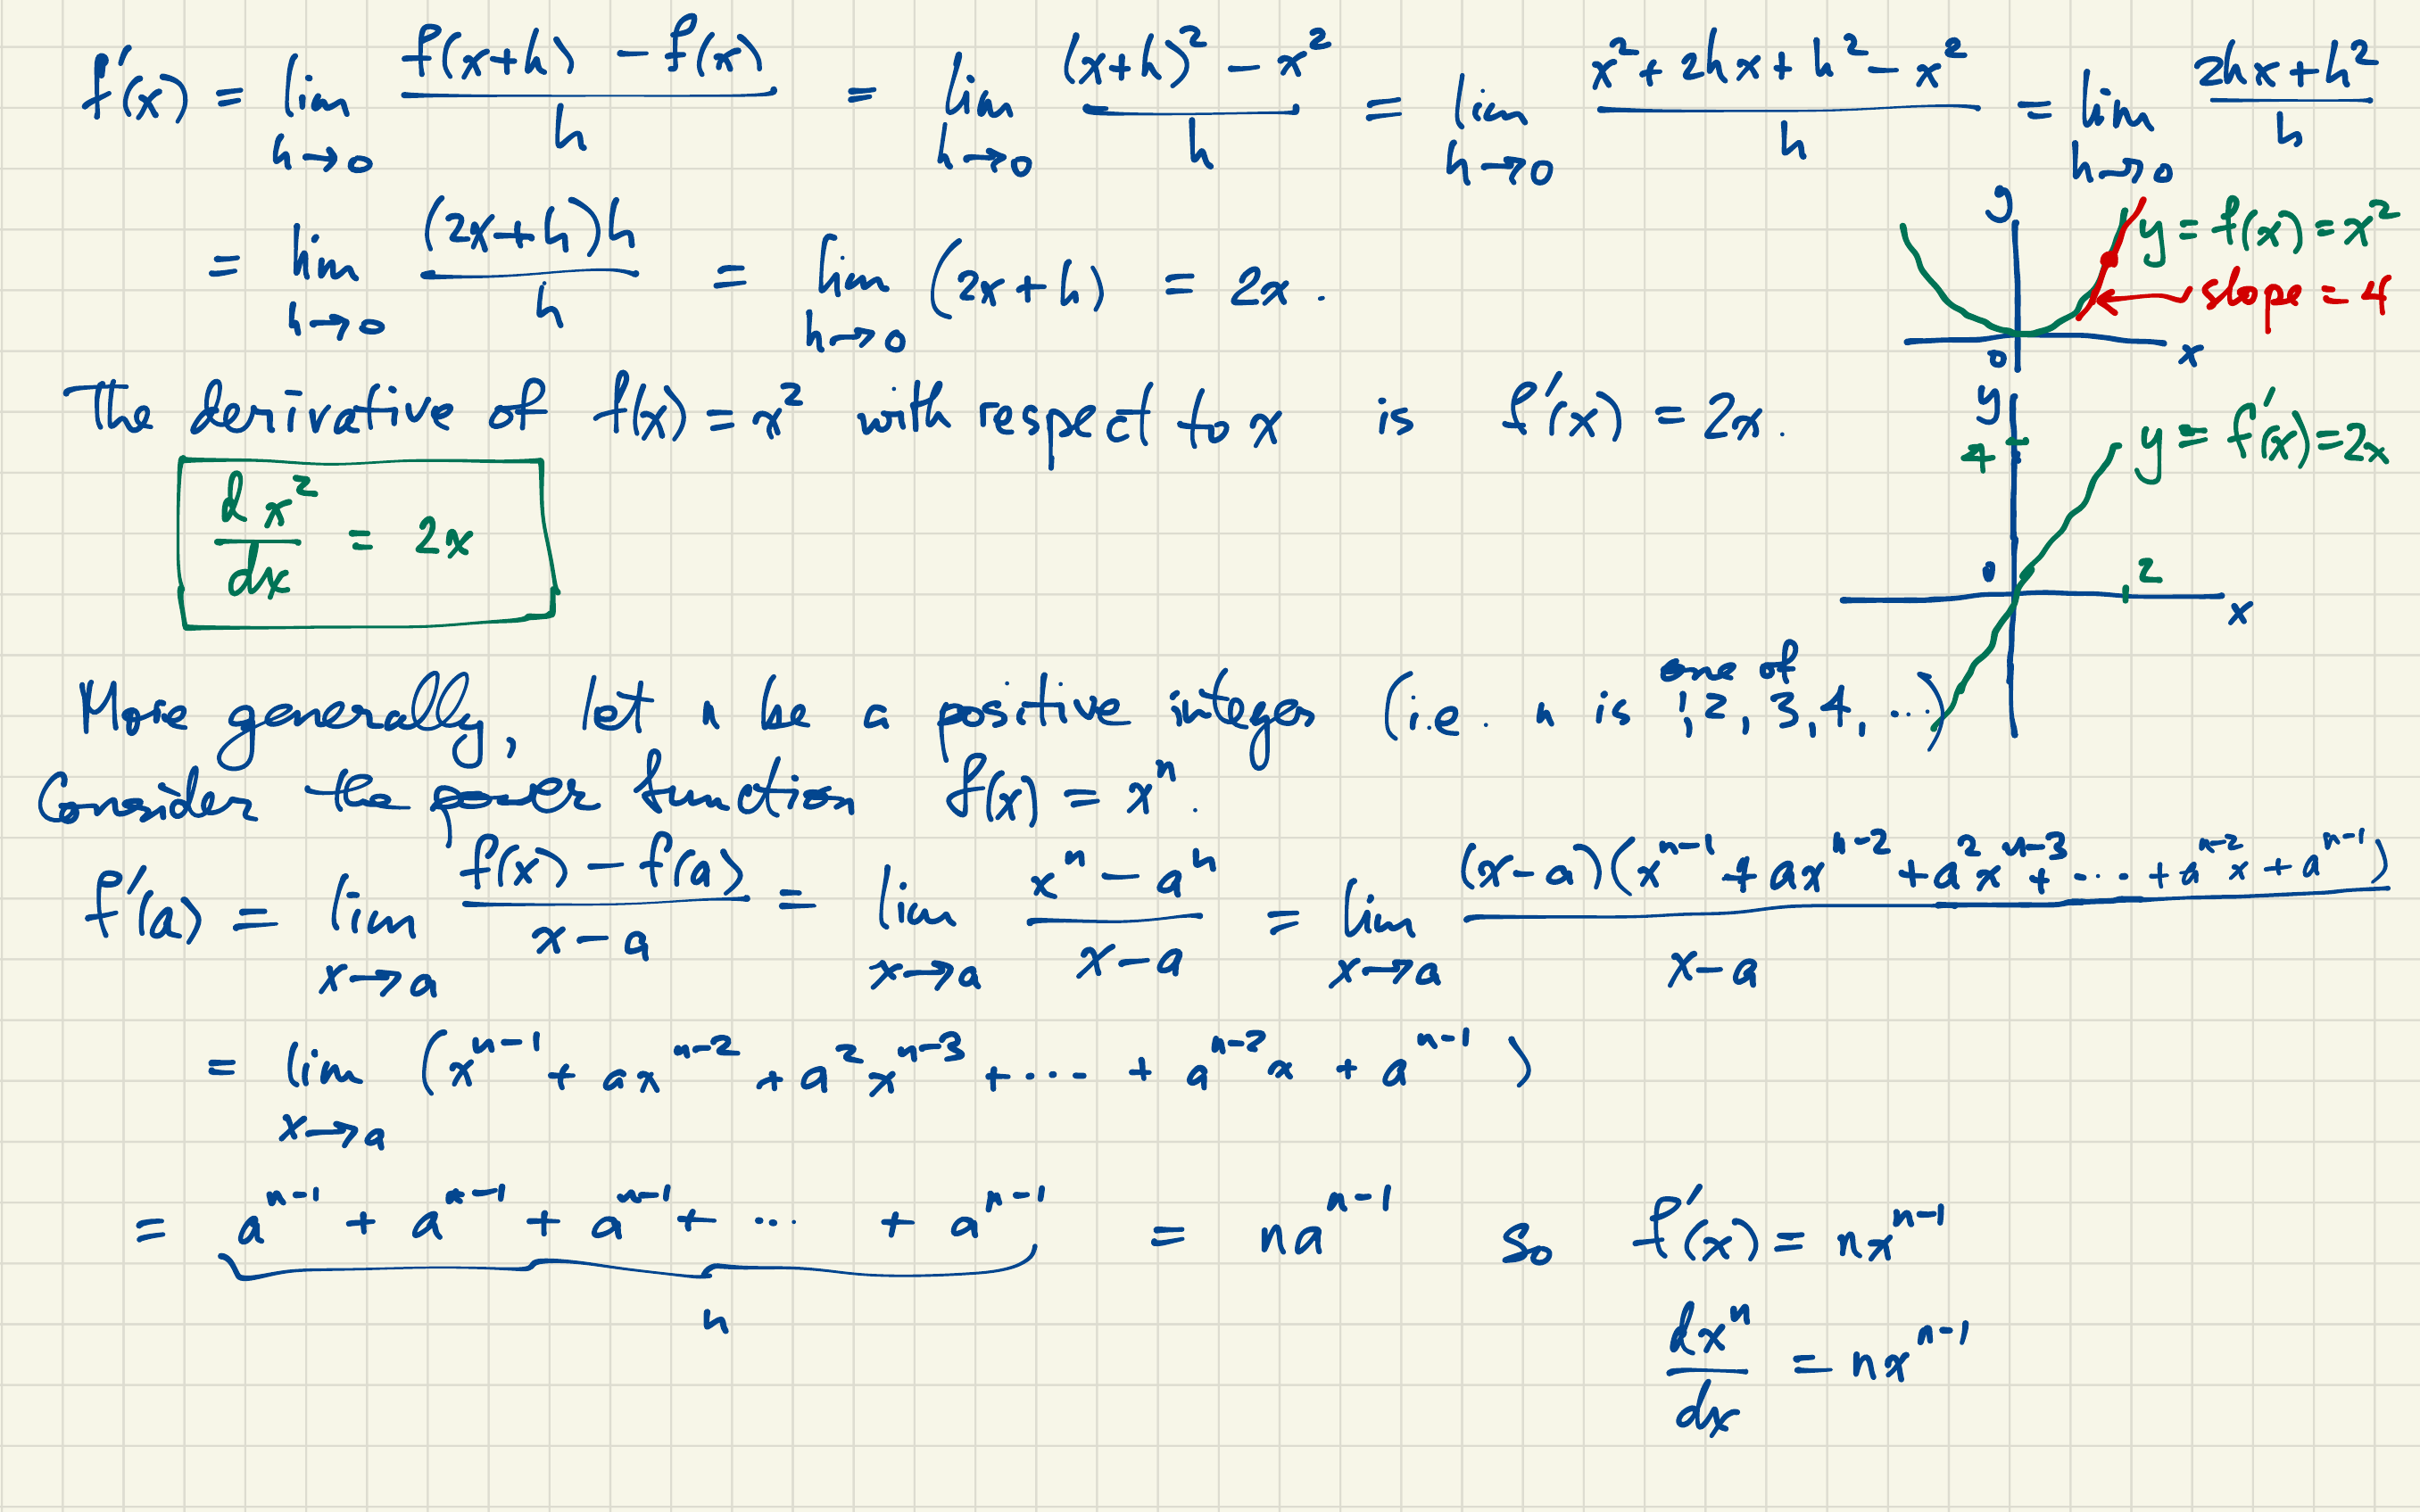 f'(x) = lim_{h→0} (f(x+h) - f(x))/h = lim_{h→0} ((x+h)² - x²)/h = lim_{h→0} (x² + 2hx + h² - x²)/h = lim_{h→0} (2hx + h²)/h
= lim_{h→0} ((2x+h)h)/h = lim_{h→0} (2x+h) = 2x.
y
y = f(x) = x²
slope = 4
0
x
The derivative of f(x) = x² with respect to x is f'(x) = 2x.
y
4
y = f'(x) = 2x
dx²/dx = 2x
0
2
x
More generally, let n be a positive integer (i.e. n is one of 1, 2, 3, 4, ...)
Consider the power function f(x) = xⁿ.
f'(a) = lim_{x→a} (f(x) - f(a))/(x-a) = lim_{x→a} (xⁿ - aⁿ)/(x-a) = lim_{x→a} ((x-a)(x^{n-1} + ax^{n-2} + a²x^{n-3} + ... + a^{n-2}x + a^{n-1}))/(x-a)
= lim_{x→a} (x^{n-1} + ax^{n-2} + a²x^{n-3} + ... + a^{n-2}x + a^{n-1})
= a^{n-1} + a^{n-1} + a^{n-1} + ... + a^{n-1} = na^{n-1} So f'(x) = nx^{n-1}
n
dxⁿ/dx = nx^{n-1}